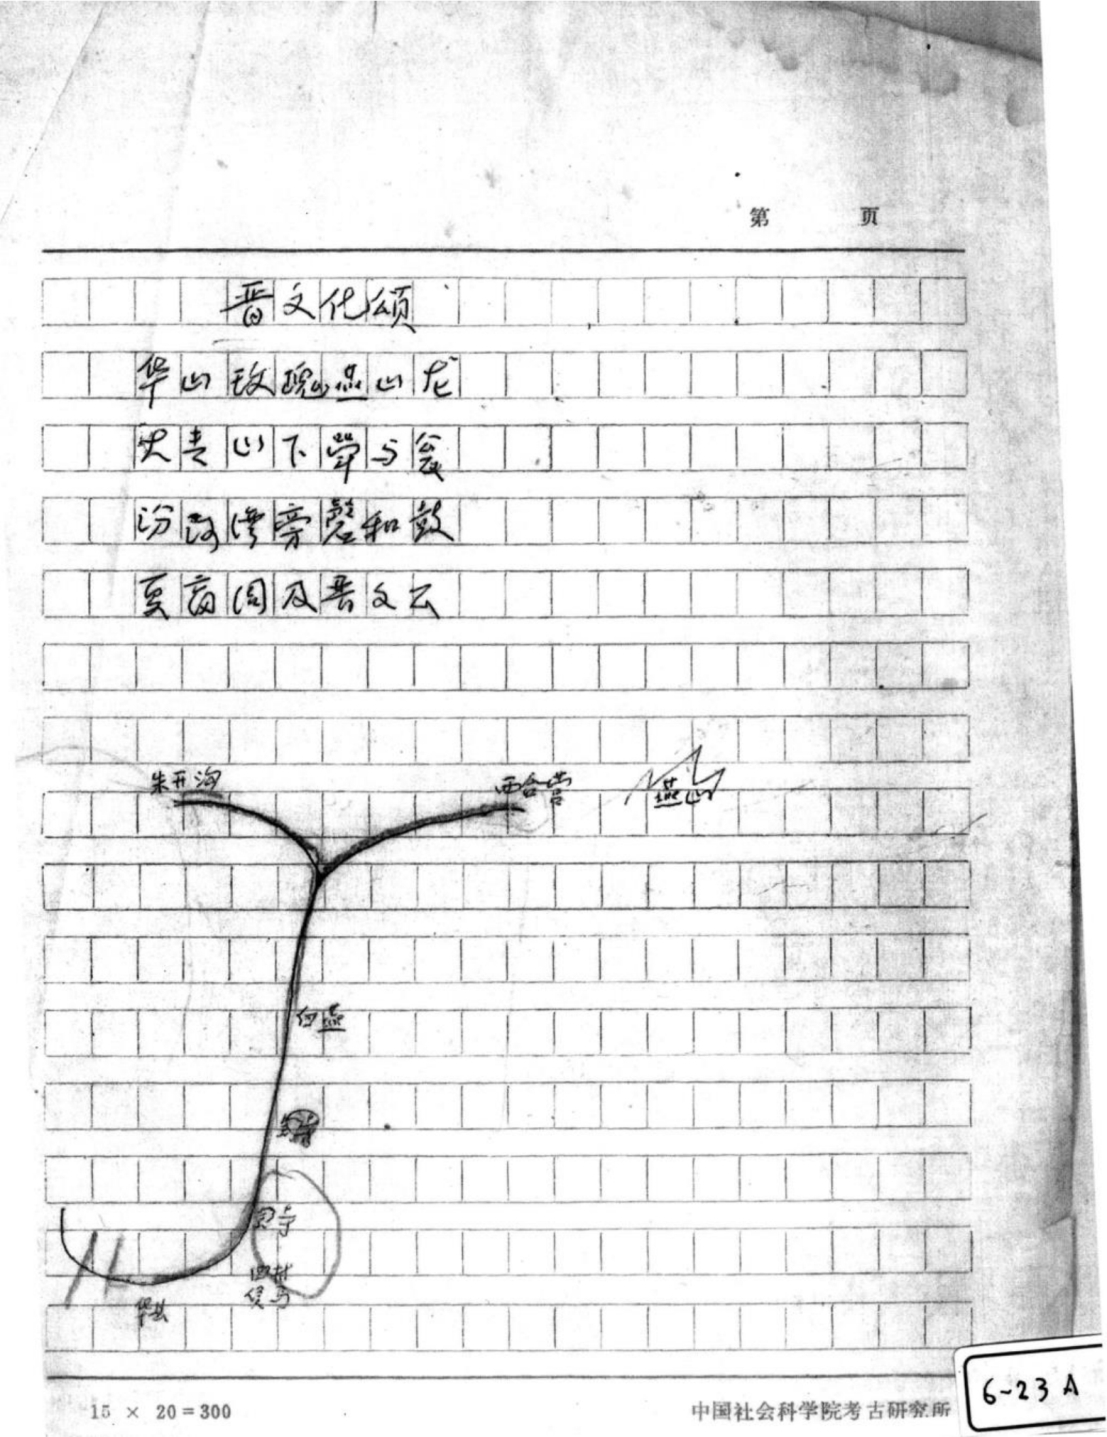 第 页
晋文化颂
华山玫瑰燕山龙
大青山下斝与瓮
汾河湾旁磬和鼓
夏商周及晋文公
朱开沟 西合营 燕山
白燕
曲村
侯马
华县
15 × 20 = 300 中国社会科学院考古研究所
6-23 A